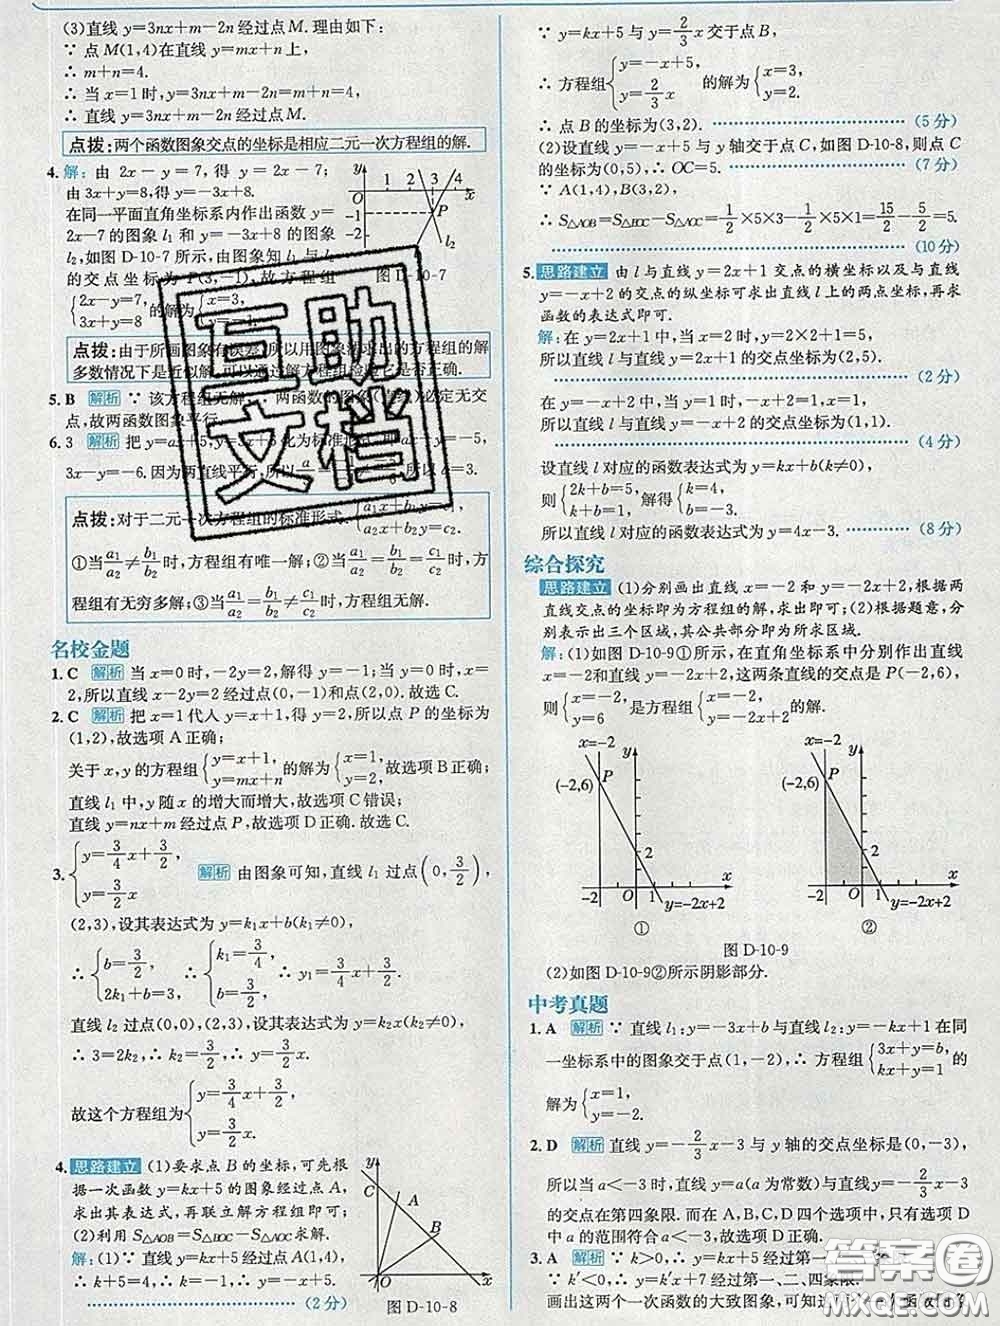 (3)直线 y=3nx+m-2n 经过点M. 理由如下:
∵ 点 M(1,4)在直线 y=mx+n 上,
∴ m+n=4.
∴ 当 x=1时, y=3nx+m-2n=m+n=4,
∴ 直线 y=3nx+m-2n 经过点M.
点拨:两个函数图象交点的坐标是相应二元一次方程组的解.
4. 解: 由 2x-y=7, 得 y=2x-7;
由 3x+y=8, 得 y=-3x+8.
在同一平面直角坐标系内作出函数 y=
2x-7 的图象 l₁ 和 y=-3x+8 的图象
l₂, 如图 D-10-7 所示, 由图象知 l₁ 与 l₂
的交点坐标为 P(3,-1). 故方程组
{2x-y=7, 3x+y=8 的解为 {x=3,
y 1 2 3 4 O x -1 -2 P l₂
图 D-10-7
点拨:由于所画图象有误差,所以用图象法求出的方程组的解
多数情况下是近似解,可以通过解方程组检验它是否正确.
5. B 解析 ∵ 该方程组无解, 两函数的图象(直线)必定无交
点,故两函数图象平行.
6. 3 解析 把 y=ax+5,y=3x+6化为标准形式,即 ax-y=-5,
3x-y=-6. 因为两直线平行,所以
点拨:对于二元一次方程组的标准形式 {a₁x+b₁y=c₁, a₂x+b₂y=c₂.
①当 a₁/a₂≠b₁/b₂ 时,方程组有唯一解; ②当 a₁/a₂=b₁/b₂=c₁/c₂ 时,方
程组有无穷多解;③当 a₁/a₂=b₁/b₂≠c₁/c₂ 时,方程组无解.
名校金题
1. C 解析 当 x=0时,-2y=2,解得 y=-1;当 y=0时,x=
2,所以直线 x-2y=2 经过点(0,-1)和点(2,0). 故选C.
2. C 解析 把 x=1代入 y=x+1,得 y=2,所以点 P 的坐标为
(1,2),故选项A正确;
关于 x,y 的方程组 {y=x+1, y=mx+n 的解为 {x=1, y=2, 故选项B正确;
直线 l₁ 中,y 随 x 的增大而增大,故选项C错误;
直线 y=nx+m 经过点 P,故选项D正确. 故选C.
3. {y=3/4 x+3/2, y=3/2 x 解析 由图象可知,直线 l₁ 过点(0,3/2),
(2,3),设其表达式为 y=k₁x+b(k₁≠0),
∴ {b=3/2, 2k₁+b=3, ∴ {k₁=3/4, b=3/2, ∴ y₁=3/4 x+3/2.
直线 l₂ 过点(0,0),(2,3),设其表达式为 y=k₂x(k₂≠0),
∴ 3=2k₂,∴ k₂=3/2,∴ y=3/2 x.
故这个方程组为 {y=3/4 x+3/2, y=3/2 x.
4. 思路建立 (1)要求点 B 的坐标,可先根
据一次函数 y=kx+5 的图象经过点 A,
求出其表达式,再联立解方程组即可;
(2)利用 S△AOB=S△BOC-S△AOC 求解.
解:(1)∵ 直线 y=kx+5 经过点 A(1,4),
∴ k+5=4,∴ k=-1,∴ y=-x+5.
(2分)
y C A B O x
图 D-10-8
∵ y=kx+5 与 y=2/3 x 交于点 B,
∴ 方程组 {y=-x+5, y=2/3 x 的解为 {x=3, y=2.
∴ 点 B 的坐标为(3,2). (5分)
(2)设直线 y=-x+5 与 y 轴交于点 C,如图 D-10-8,则点 C
的坐标为(0,5),∴ OC=5. (7分)
∵ A(1,4),B(3,2),
∴ S△AOB=S△BOC-S△AOC=1/2×5×3-1/2×5×1=15/2-5/2=5.
(10分)
5. 思路建立 由 l 与直线 y=2x+1 交点的横坐标以及与直线
y=-x+2 的交点的纵坐标可求出直线 l 上的两点坐标,再求
函数的表达式即可.
解:在 y=2x+1 中,当 x=2时,y=2×2+1=5,
所以直线 l 与直线 y=2x+1 的交点坐标为(2,5).
(2分)
在 y=-x+2 中,当 y=1时,-x+2=1,x=1,
所以直线 l 与直线 y=-x+2 的交点坐标为(1,1).
(4分)
设直线 l 对应的函数表达式为 y=kx+b(k≠0),
则 {2k+b=5, k+b=1, 解得 {k=4, b=-3.
所以直线 l 对应的函数表达式为 y=4x-3. (8分)
综合探究
思路建立 (1)分别画出直线 x=-2 和 y=-2x+2,根据两
直线交点的坐标即为方程组的解,求出即可;(2)根据题意,分
别表示出三个区域,其公共部分即为所求区域.
解:(1)如图 D-10-9①所示,在直角坐标系中分别作出直线
x=-2 和直线 y=-2x+2,这两条直线的交点是 P(-2,6),
则 {x=-2, y=6 是方程组 {x=-2, y=-2x+2 的解.
x=-2 y (-2,6) P 2 x -2 O 1 y=-2x+2
①
x=-2 y (-2,6) P 2 x -2 O 1 y=-2x+2
②
图 D-10-9
(2)如图 D-10-9②所示阴影部分.
中考真题
1. A 解析 ∵ 直线 l₁:y=-3x+b 与直线 l₂:y=-kx+1 在同
一坐标系中的图象交于点(1,-2),∴ 方程组 {3x+y=b, kx+y=1 的
解为 {x=1, y=-2.
2. D 解析 直线 y=-2/3 x-3 与 y 轴的交点坐标是(0,-3),
所以当 a<-3时,直线 y=a(a 为常数)与直线 y=-2/3 x-3
的交点在第四象限. 而在 A、B、C、D 四个选项中,只有选项 D
中 a 的范围符合 a<-3,故选D.
3. A 解析 ∵ k>0,∴ y=kx+ 经过第一、
∵ k′<0,∴ y=k′x+7 经过第一、二、四象限.
画出这两个一次函数的大致图象,可知这两个一次函数图
互助
文档
答案圈
MXQE.COM